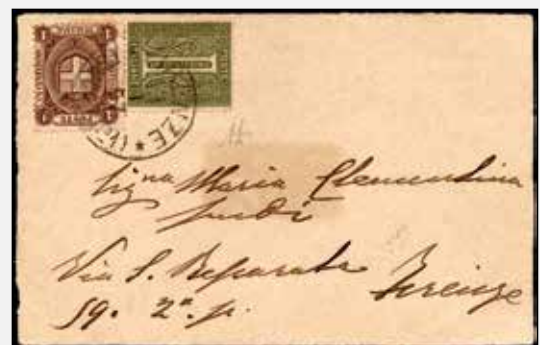 1
1
1
NZE
Sig.na Maria Clementina
Via S. Reparata Firenze
59. 2º. p.